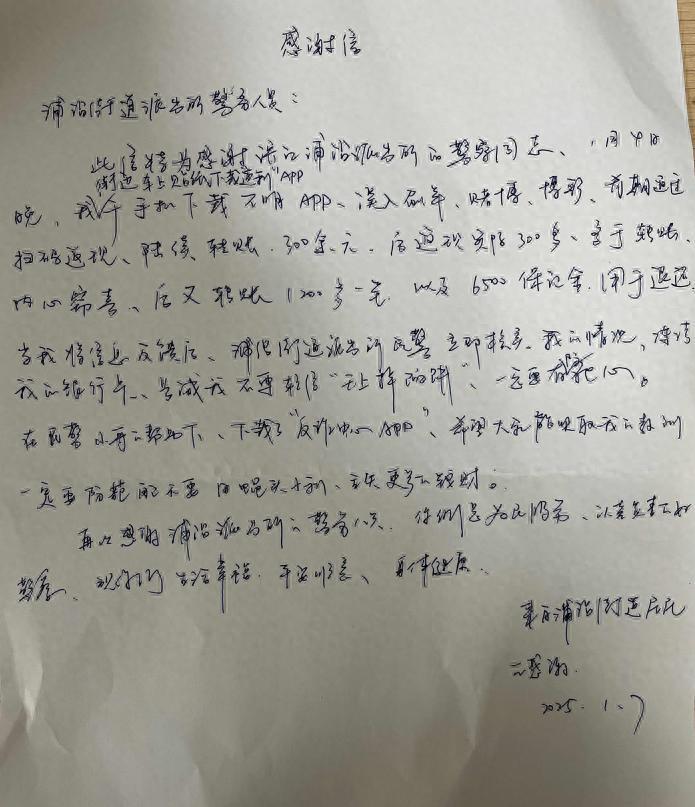 感谢信
浦沿街道派出所警务人员：
此信特为感谢滨江浦沿派出所的警察同志、1月4日
街边车上贴纸下载返利"APP
晚、我于手机下载不明APP、误入刷单、赌博、博彩、前期通过
扫码返现、陆续转账.300余元.后返现实际300多、至于转账、
内心窃喜、后又转账1200多一笔.以及6500保证金.用于返还
当我将信息反馈后、浦沿街道派出所民警立即核实我的情况、冻结
我的银行卡、告诫我不要轻信"天上掉的饼"、一定要有戒心。
在民警小哥的帮助下、下载了"反诈中心APP"、希望大家能吸取我的教训
一定要防范而不要因蝇头小利、丢失更多的钱财。
再次感谢浦沿派出所的警务人员.你们是为民服务、认真负责的好
警察、祝你们生活幸福.平安顺意、身体健康.
来自浦沿街道居民
的感谢.
2025.1.7